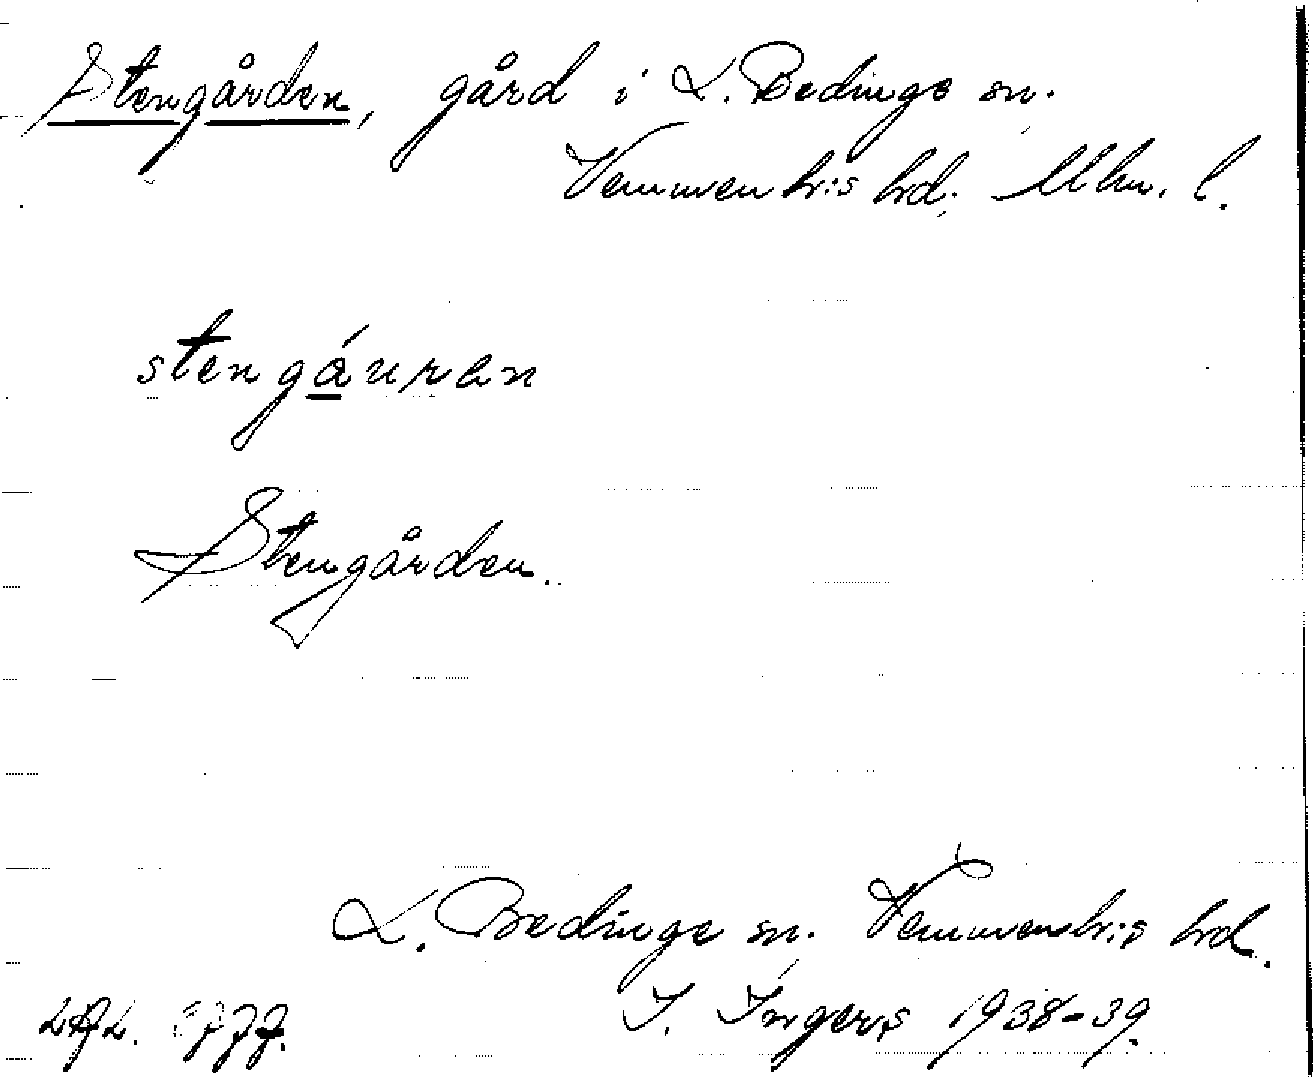 Stengården, gård i L. Bedinge sn.
Vemmenhis hd. Mlm. l.
stengáuran
Stengården.
L. Bedinge sn. Vemmenhis hd.
I. Ingers 1938-39.